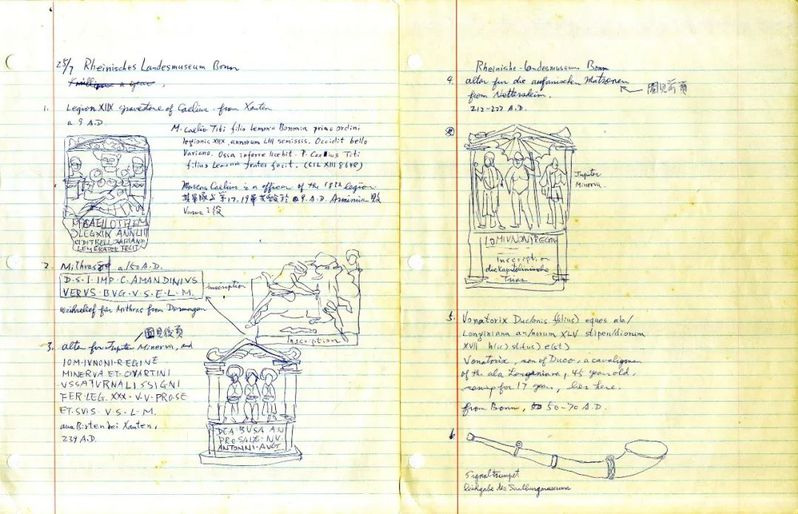 25/7 Rheinisches Landesmuseum Bonn
1. Legion XIIX gravestone of Caelius from Xanten
a 9 A.D.
M. Caelio Titi filio Lemonia Bononia primo ordini
legionis XIIX annorum LIII semissis. Occidit bello
Variano. Ossa inferre licebit. P. Caelius Titi
filius Lemonia frater fecit. (CIL XIII 8648)
Marcus Caelius is a officer of the 18th legion
9 A.D. Arminius
Varus
2. Mithras a 150 A.D.
D·S·I·IMP·C·AMANDINIVS
VERVS·BVG·V·S·E·L·M.
inscription
Weihrelief für Mithras from Dormagen
Inscription
3. altar for Jupiter Minerva, and
圖見後頁
IOM·IVNONI·REGINE
MINERVA ET·OVARTINI
VSSATVRNALISSIGNI
FER LEG. XXX·V·V·PROSE
ET·SVIS V·S·L·M.
aus Birten bei Xanten,
239 A.D.
Rheinische Landesmuseum Bonn
4. altar für die aufanischen Matronen
from Nettersheim.
圖見前頁
Jupiter
Minerva.
IOMIVNONIREGIN
Inscription
die Kapitolinische
Trias
5. Vonatorix Duconis f(ilius) eques ala/
Longiniana an/norum XLV stipendiorum
XVII h(ic) s(itus) e(st)
Vonatorix, son of Duco, a cavalryman
of the ala Longiniana, 45 years old.
for 17 year, lies here.
from Bonn, 50-70 A.D.
6
Signaltrumpet
Leihgabe des Saalburgmuseum